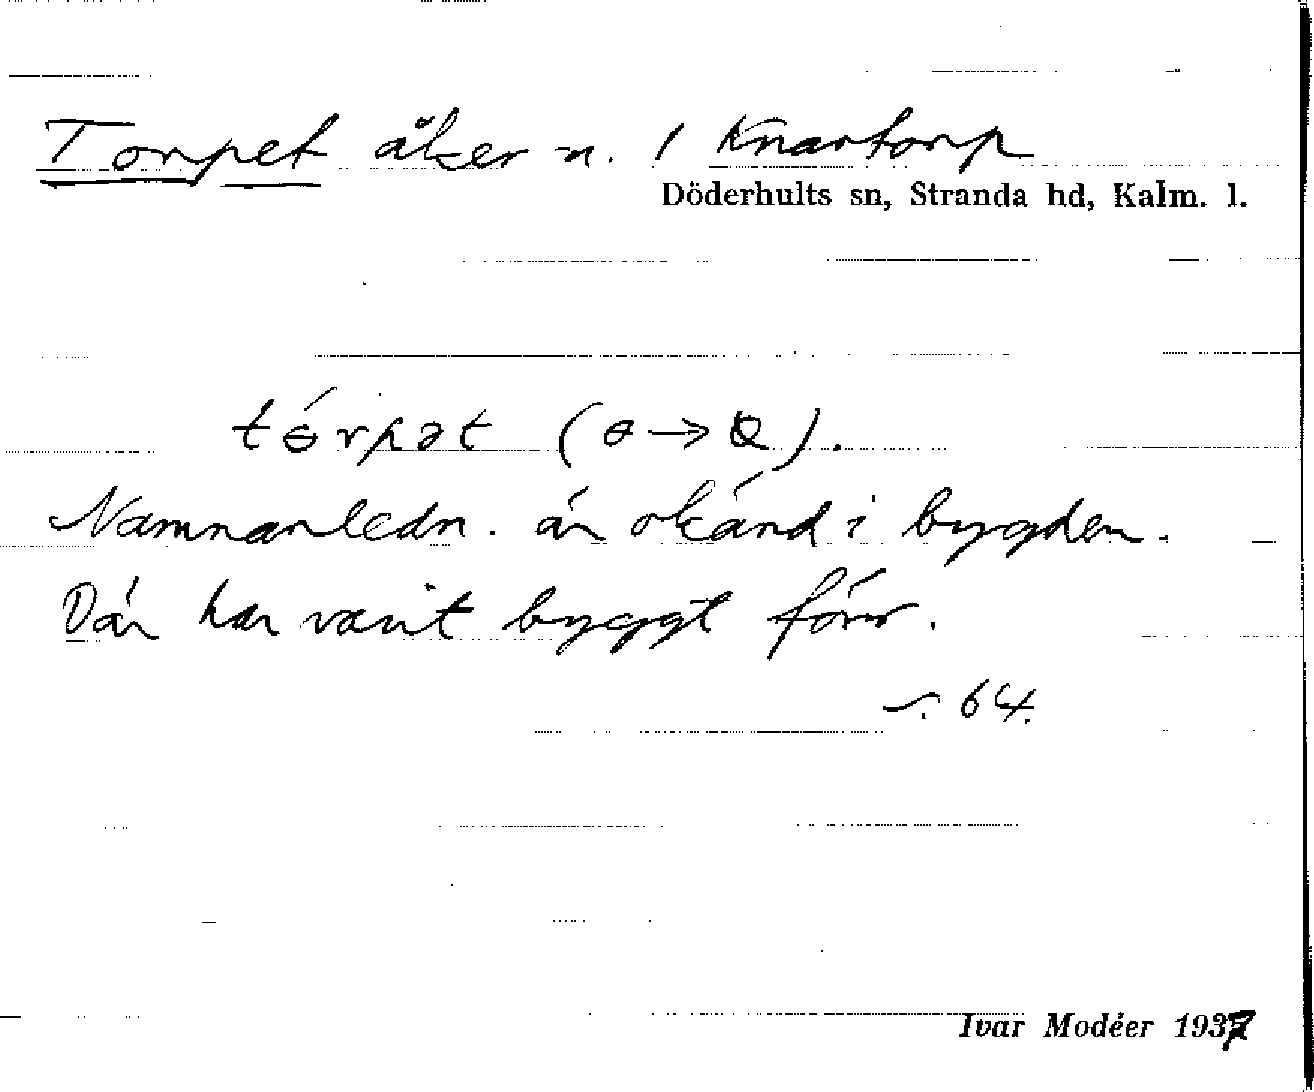 Torpet åker n. / Knartorp
Döderhults sn, Stranda hd, Kalm. l.
tɵ́rpət (ɵ → ).
Namnanledn. är okänd i bygden.
Där har varit byggt förr.
s. 64.
Ivar Modéer 1937